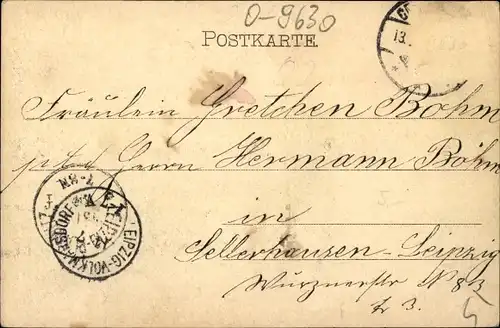 O-9630
POSTKARTE
13.
Fräulein Gretchen Bohm
Herrn Hermann Böhm
in
Sellerhausen-Leipzig
Wurznerstr N 83
3.
LEIPZIG-VOLKMARSDORF